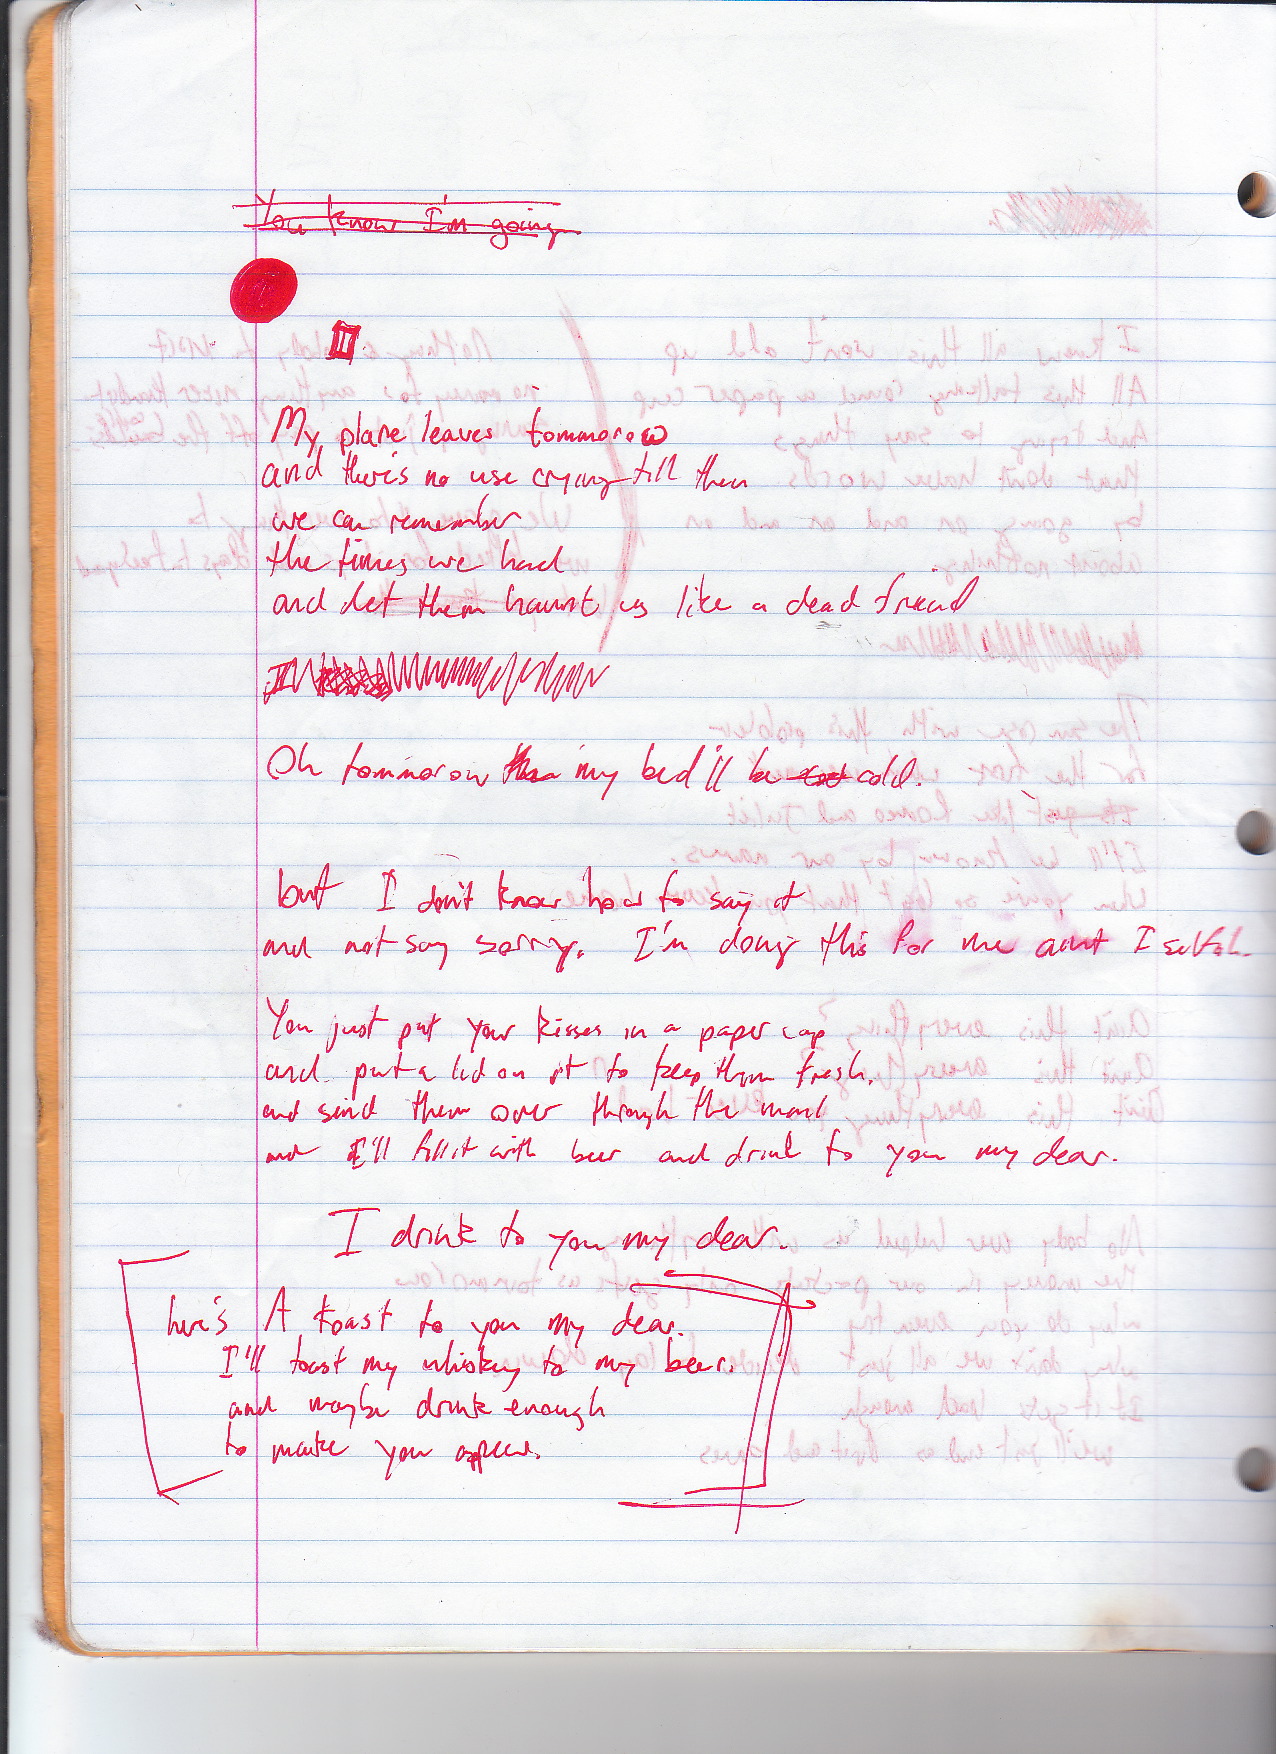 You know I'm going
II
My plane leaves tommorow
and there's no use crying till then
we can remember
the times we had
and let them haunt us like a dead friend
Oh tommorow my bed'll be cold.
but I don't know how to say it
and not say sorry. I'm doing this for me aint I selfish.
You just put your kisses in a paper cup
and put a lid on it to keep them fresh.
and send them over through the mail
and I'll fill it with beer and drink to you my dear.
I drink to you my dear.
here's A toast to you my dear.
I'll toast my whiskey to my beer.
and maybe drink enough
to make you appear.